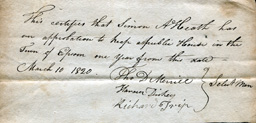 This certifies that Simon A Heath has
our approbation to keep a public House in the
Town of Epsom one year from the date
March 10 1820
D Merrill
Select Men
Dickey
Richard Tripp